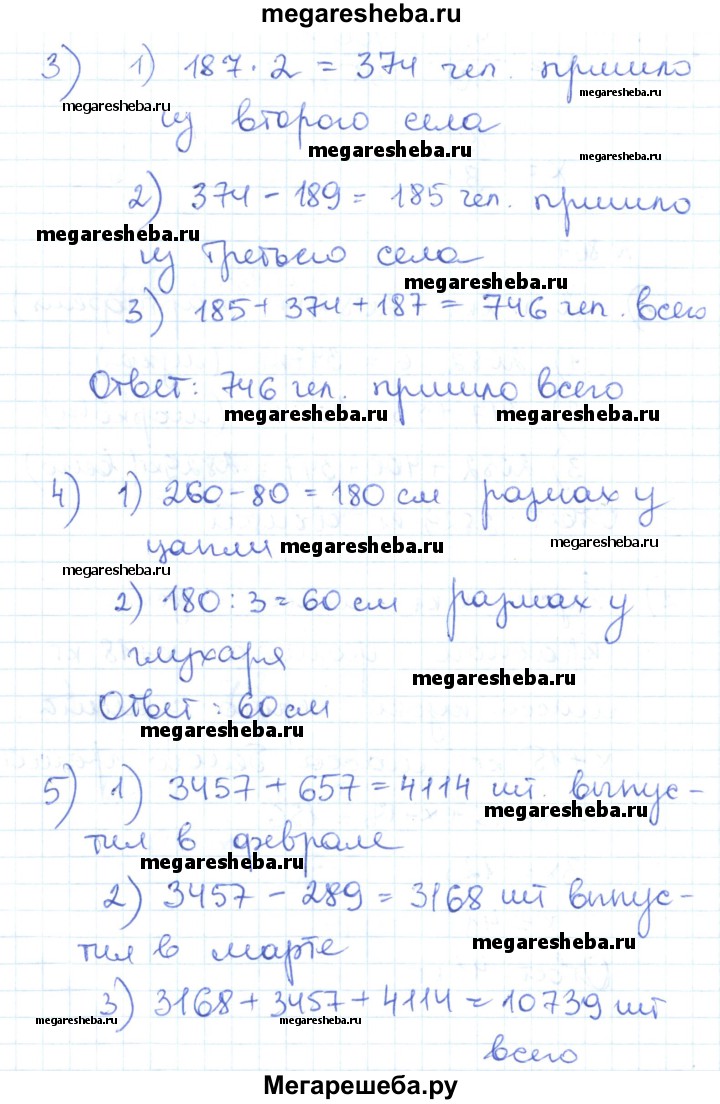 megaresheba.ru
3) 1) 187 · 2 = 374 чел. пришло
megaresheba.ru
megaresheba.ru
из второго села
megaresheba.ru
megaresheba.ru
2) 374 - 189 = 185 чел. пришло
megaresheba.ru
из третьего села
megaresheba.ru
3) 185 + 374 + 187 = 746 чел. всего
Ответ: 746 чел. пришло всего
megaresheba.ru
megaresheba.ru
4) 1) 260 - 80 = 180 см размах у
цапли
megaresheba.ru
megaresheba.ru
megaresheba.ru
2) 180 : 3 = 60 см размах у
глухаря
megaresheba.ru
Ответ: 60 см
megaresheba.ru
5) 1) 3457 + 657 = 4114 шт. выпус-
megaresheba.ru
тил в феврале
megaresheba.ru
2) 3457 - 289 = 3168 шт выпус-
тил в марте
megaresheba.ru
3) 3168 + 3457 + 4114 = 10739 шт
megaresheba.ru
megaresheba.ru
megaresheba.ru
всего
Мегарешеба.ру